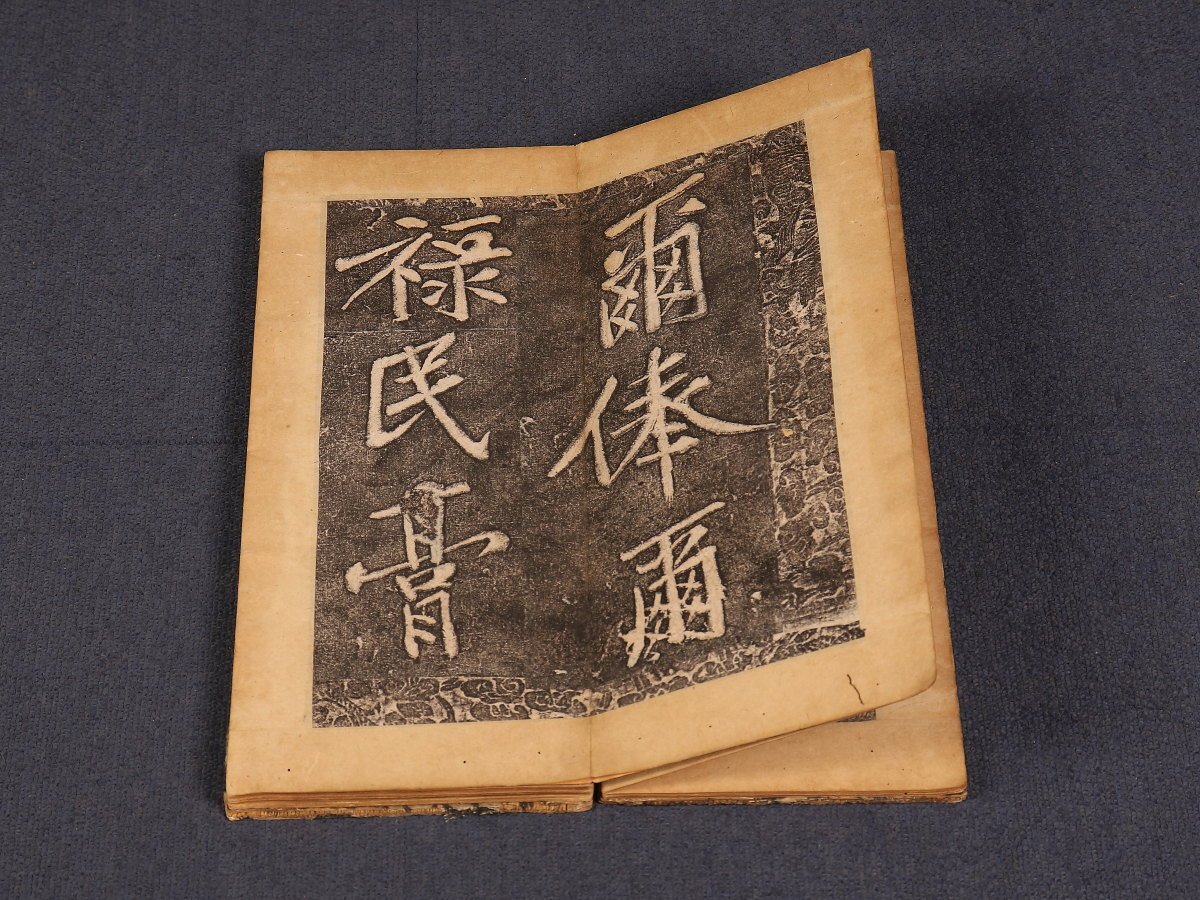 爾俸爾
禄民膏